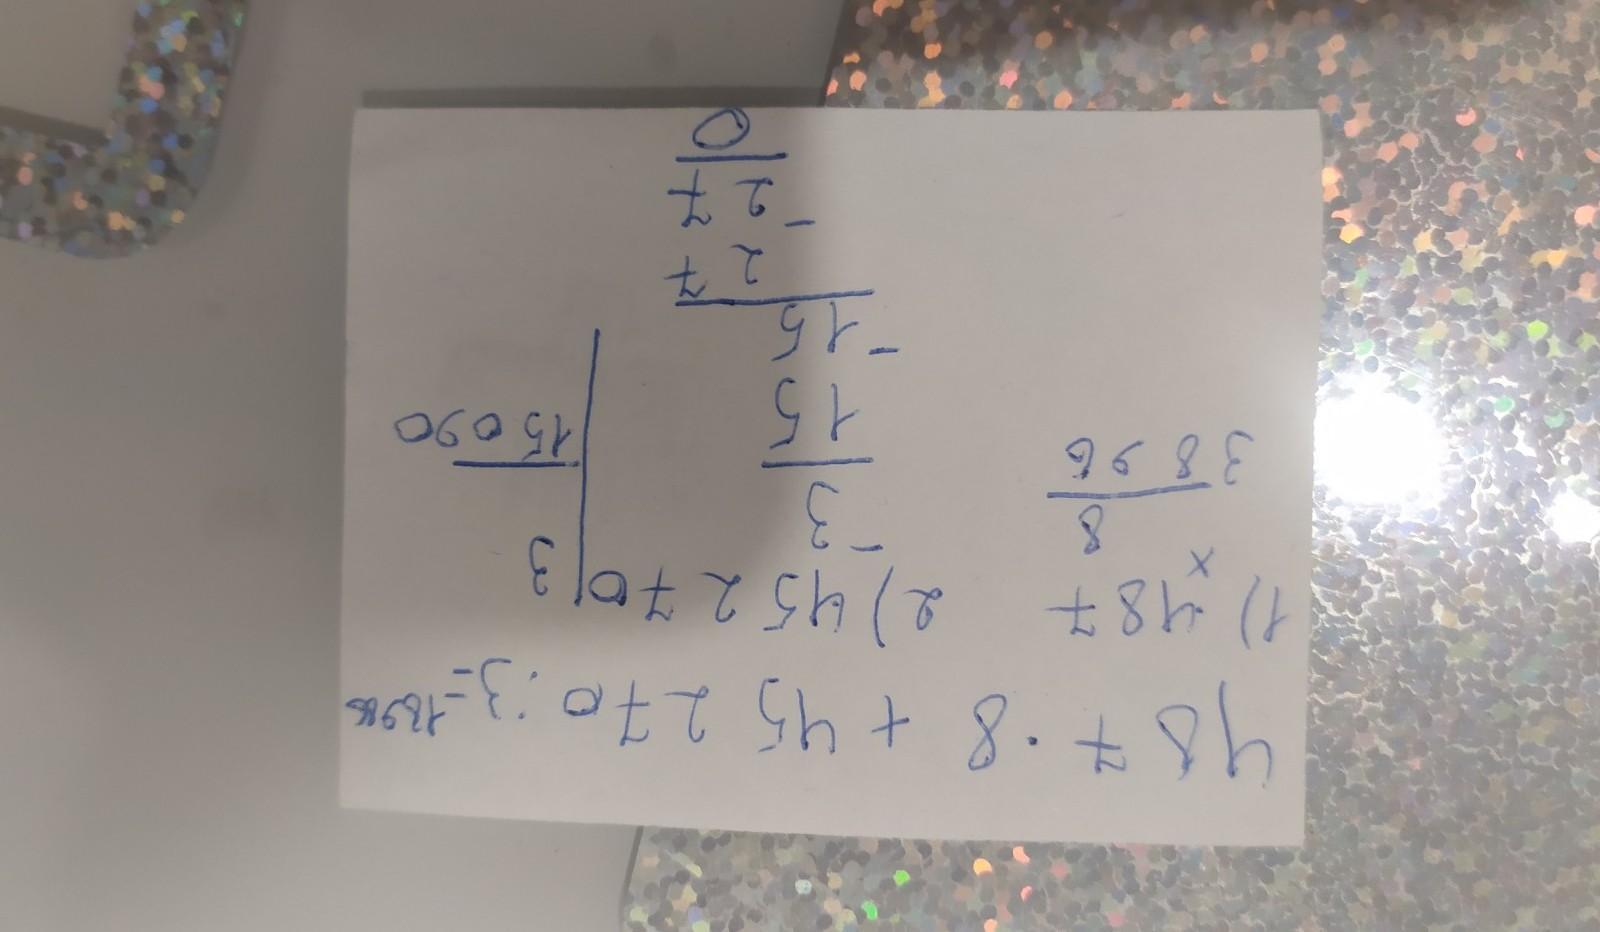 487 · 8 + 45 270 : 3 = 18986
1) 487 2) 45270 3
× 8 - 3 15090
3896 15
- 15
27
- 27
0